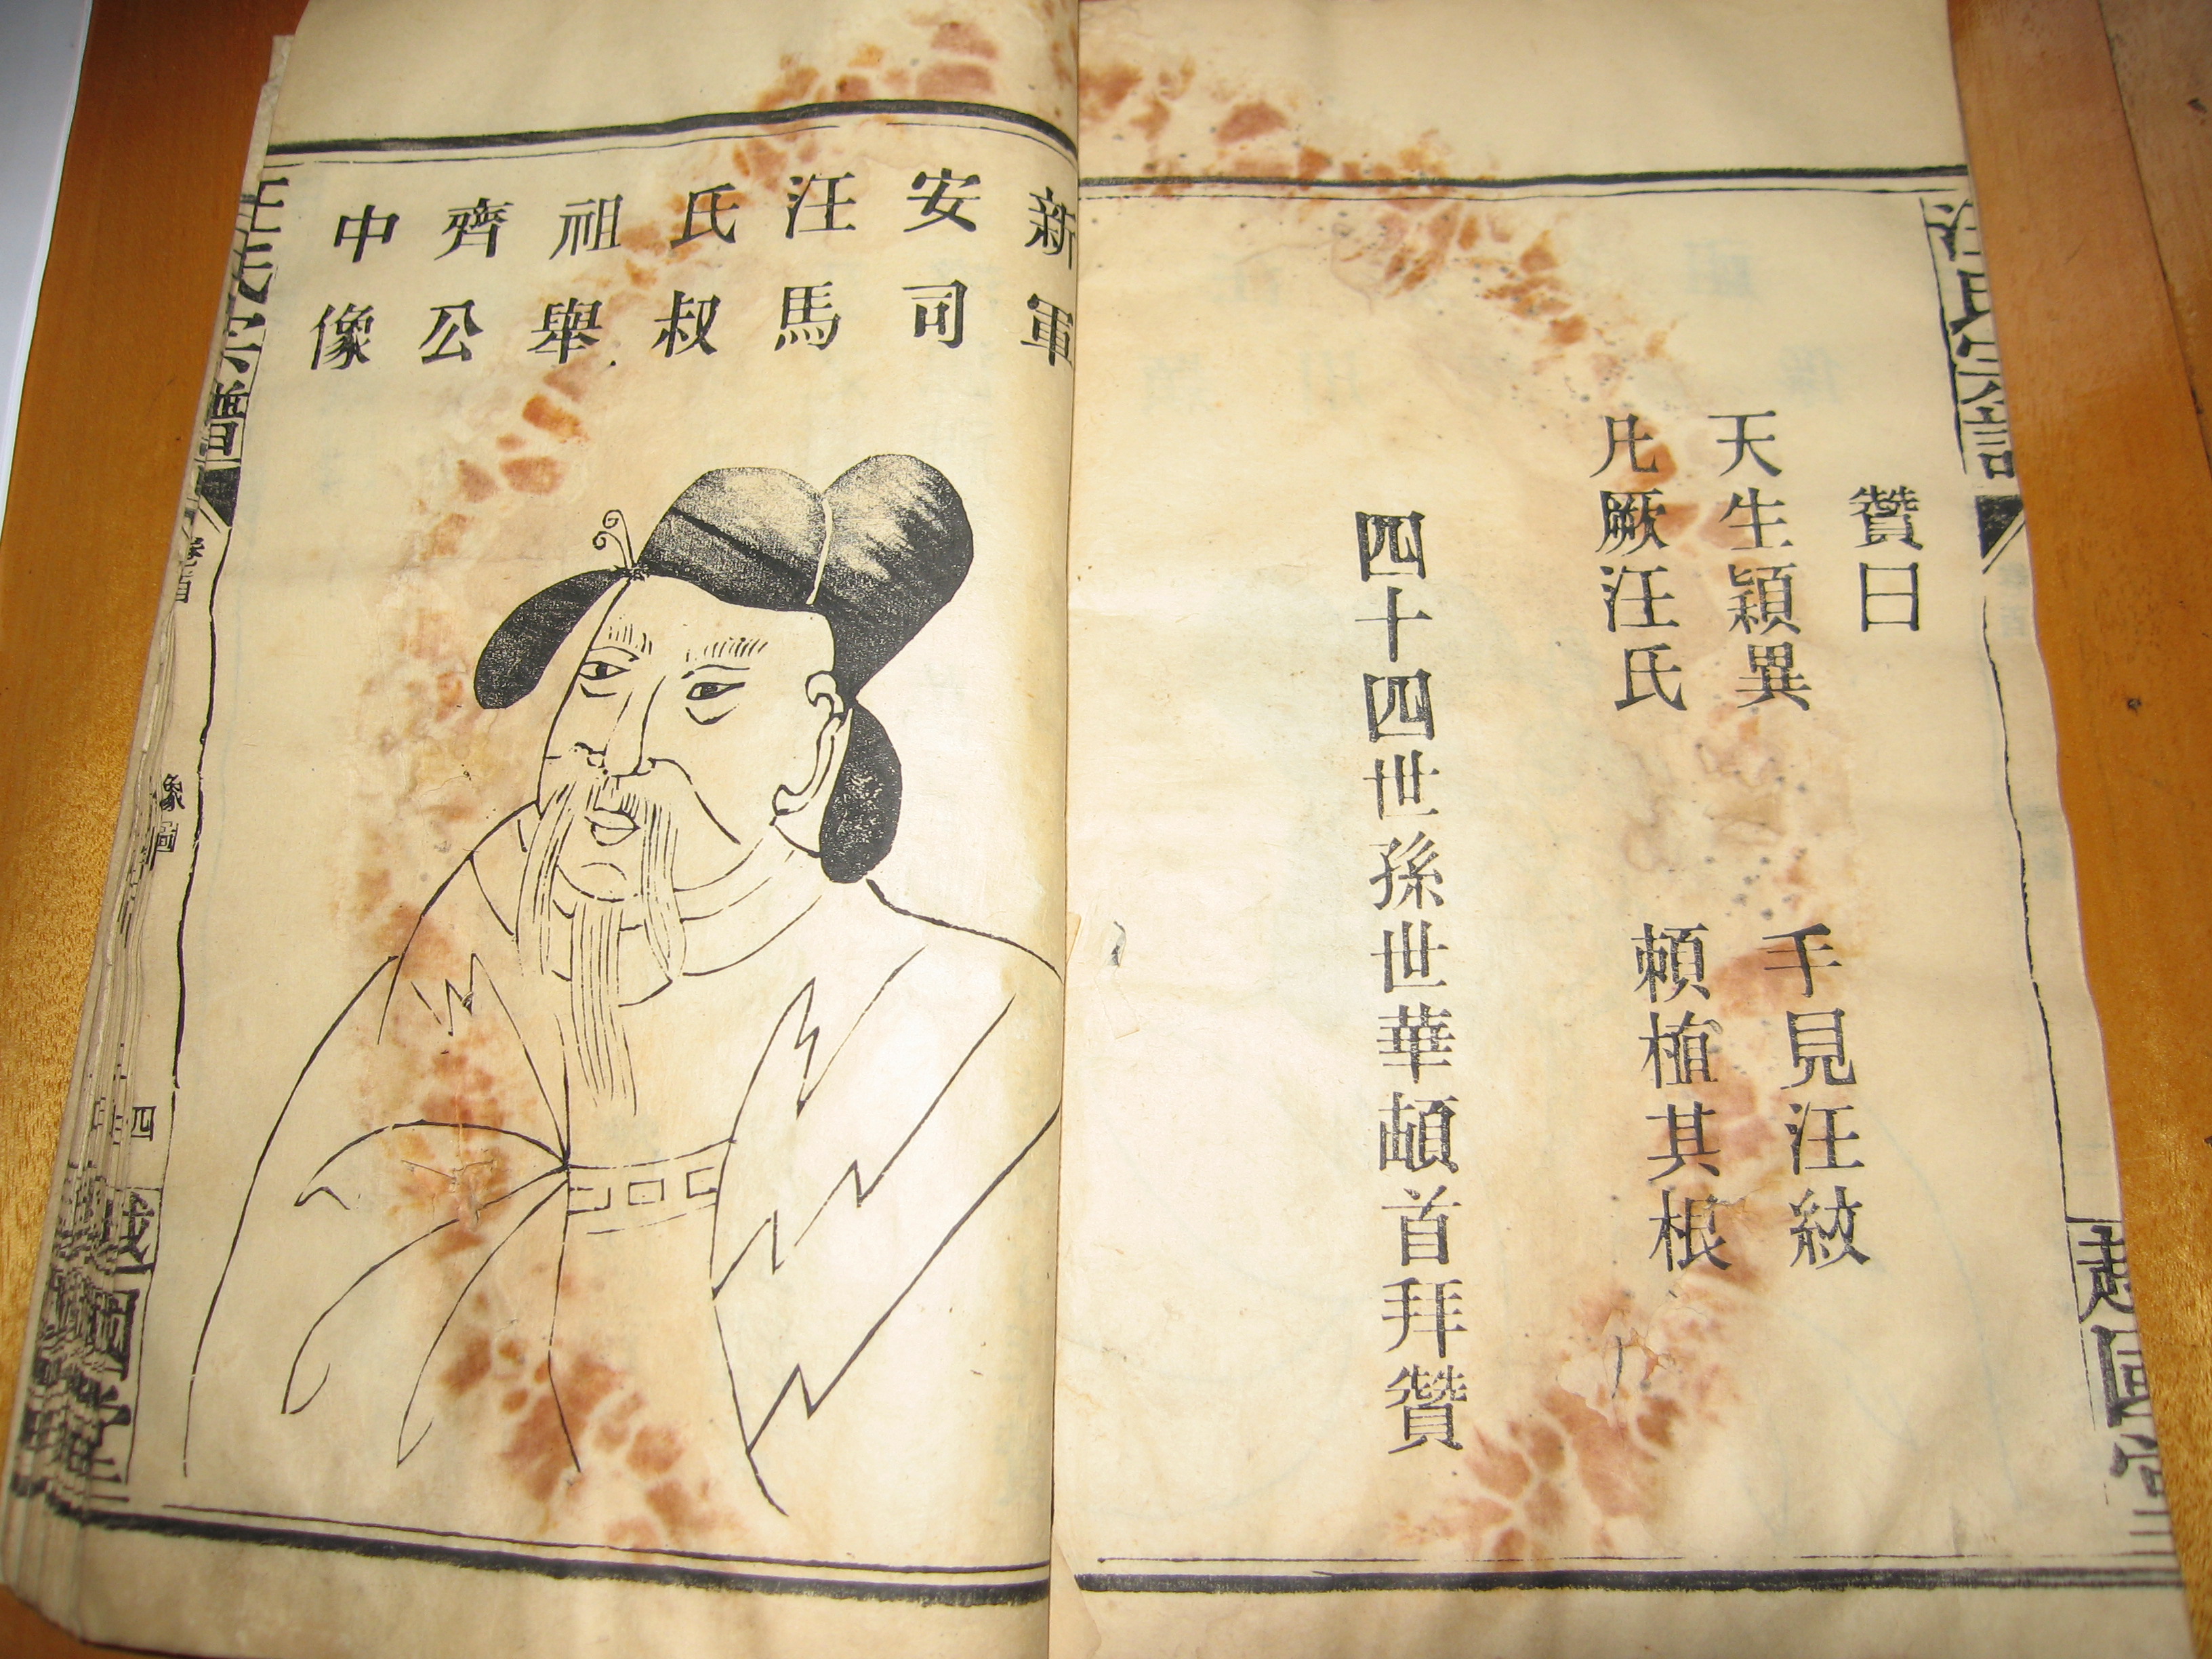 汪氏宗譜
越國堂
贊曰
天生穎異　手見汪紋
凡厥汪氏　賴植其根
四十四世孫世華頓首拜贊
新安汪氏祖齊中
軍司馬叔舉公像
汪氏宗譜
卷首
像圖
四
越國堂